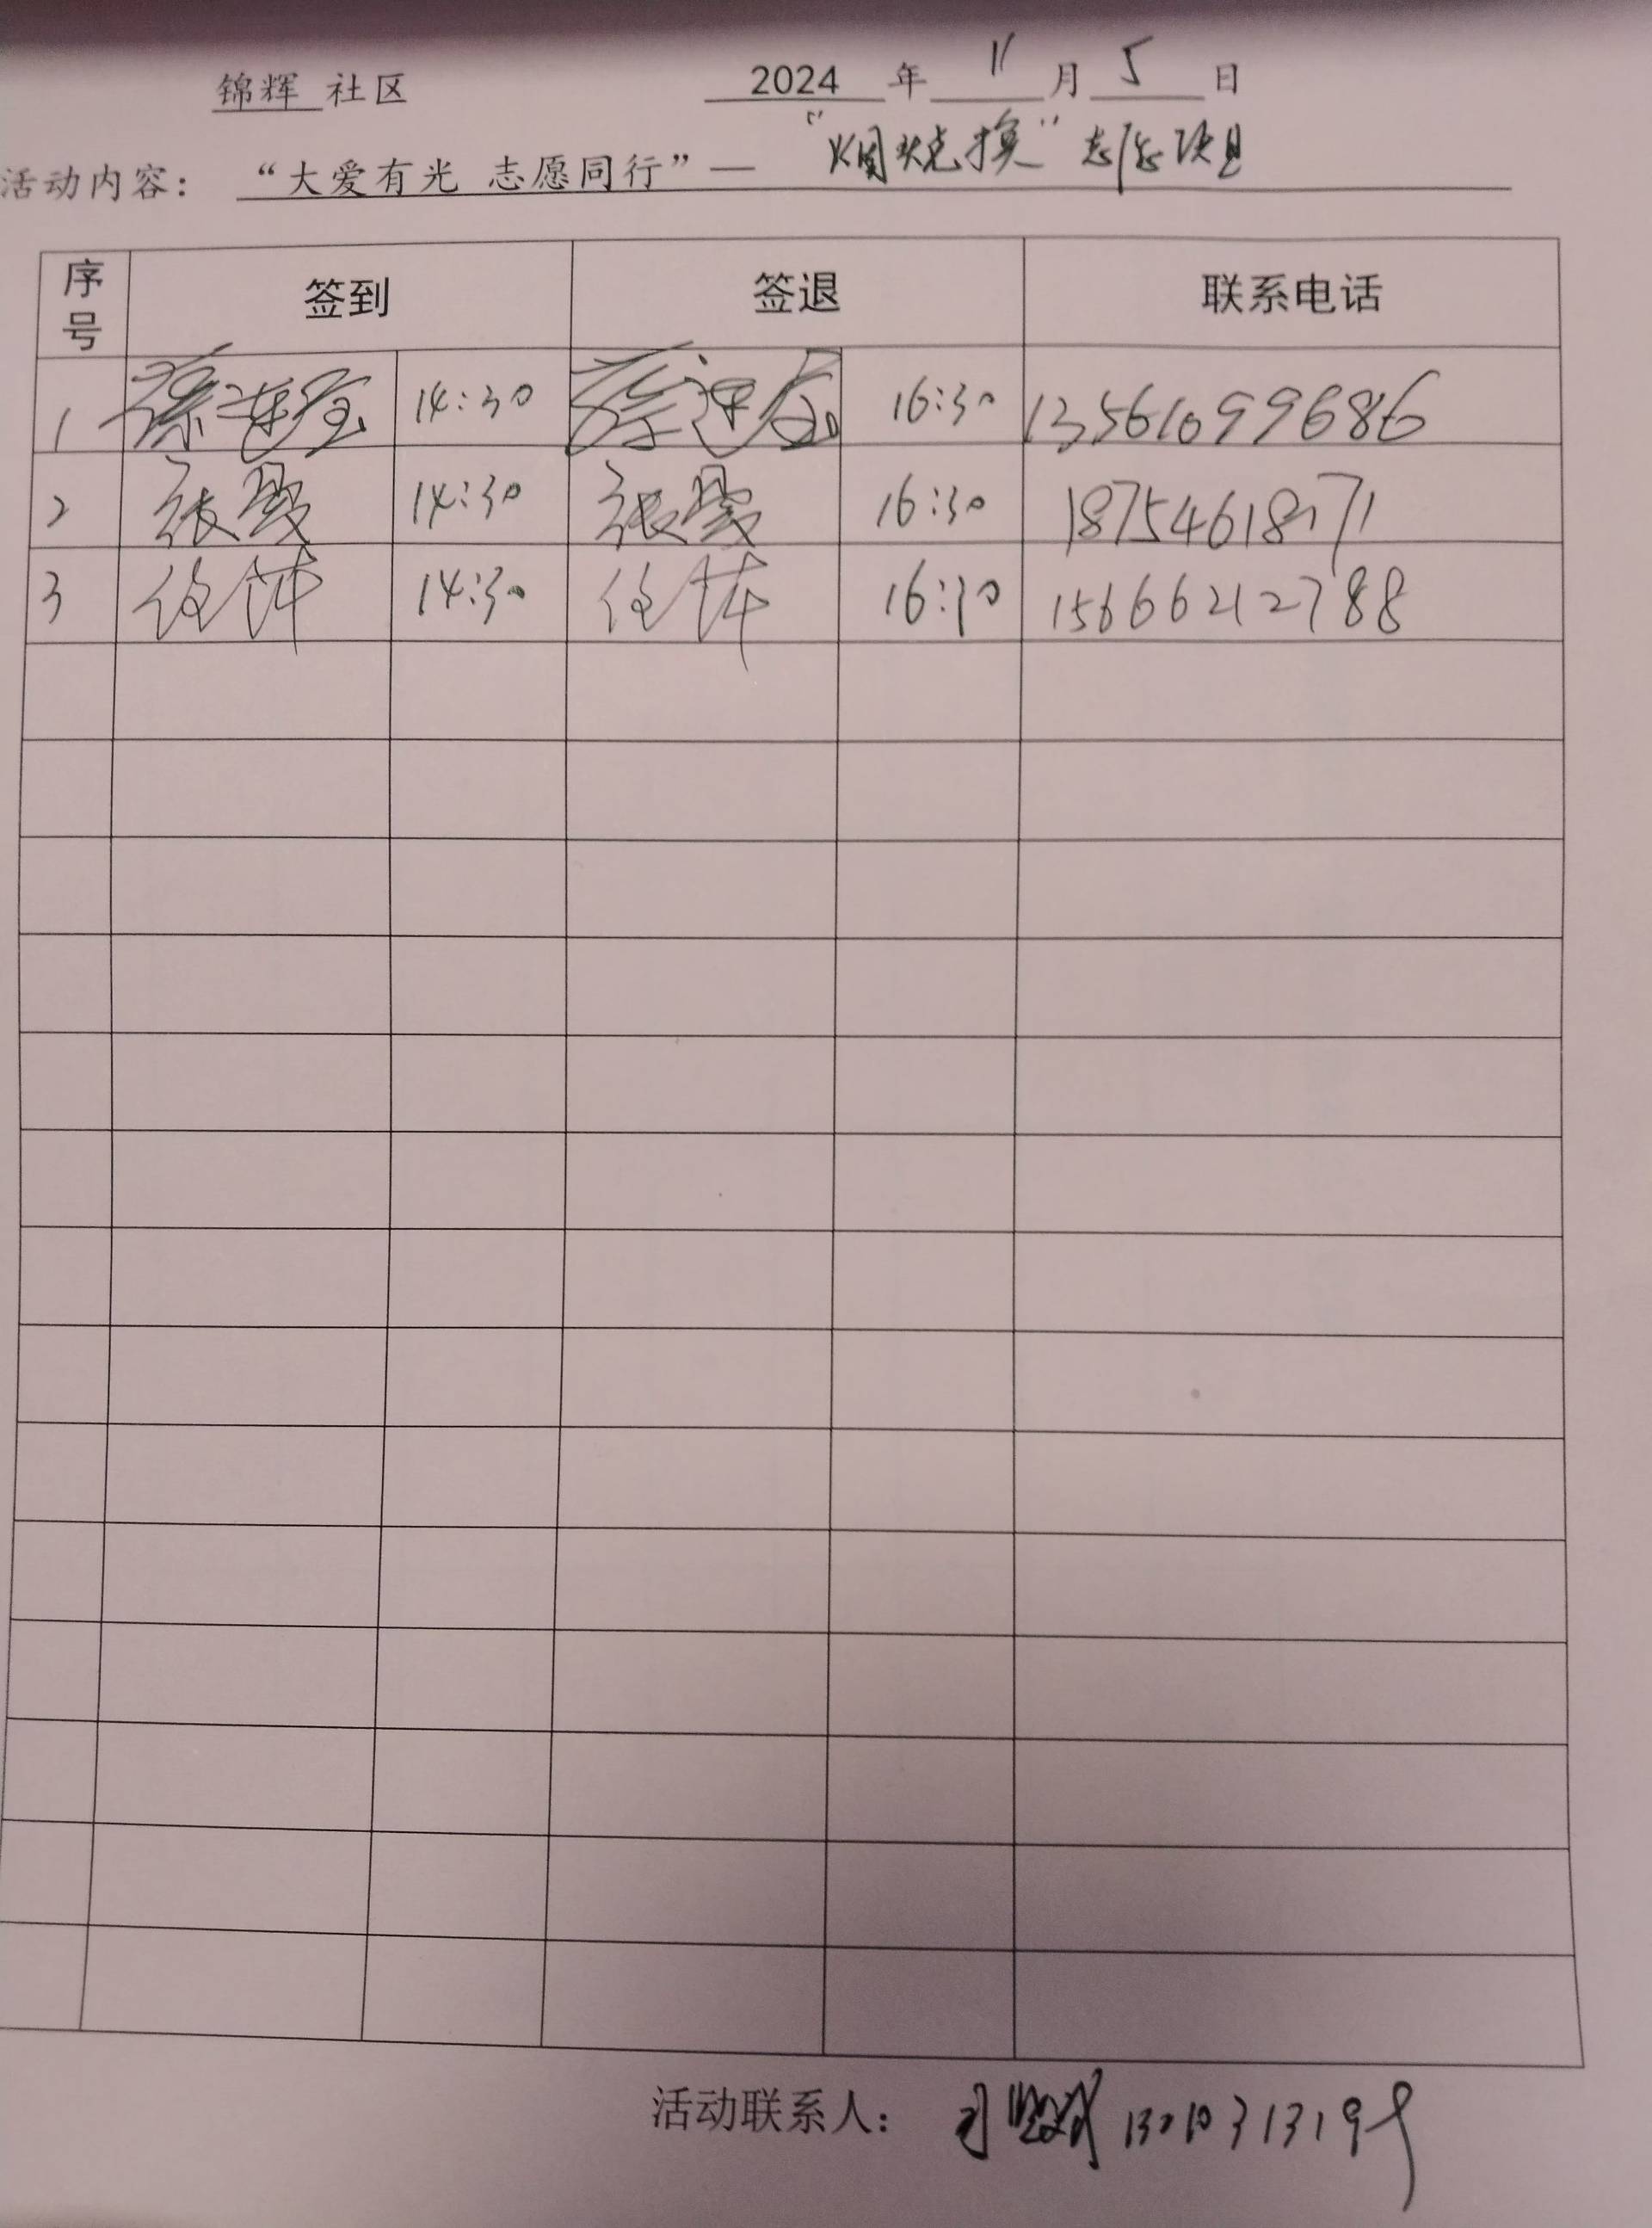 锦辉 社区 2024 年 11 月 5 日
活动内容： “大爱有光 志愿同行”— “烟 换” 志愿项目
序号 签到 签退 联系电话
1 14:30 16:30 13561099686
2 张 14:30 张 16:30
3 任萍 14:30 任萍 16:30 15666212788
活动联系人：